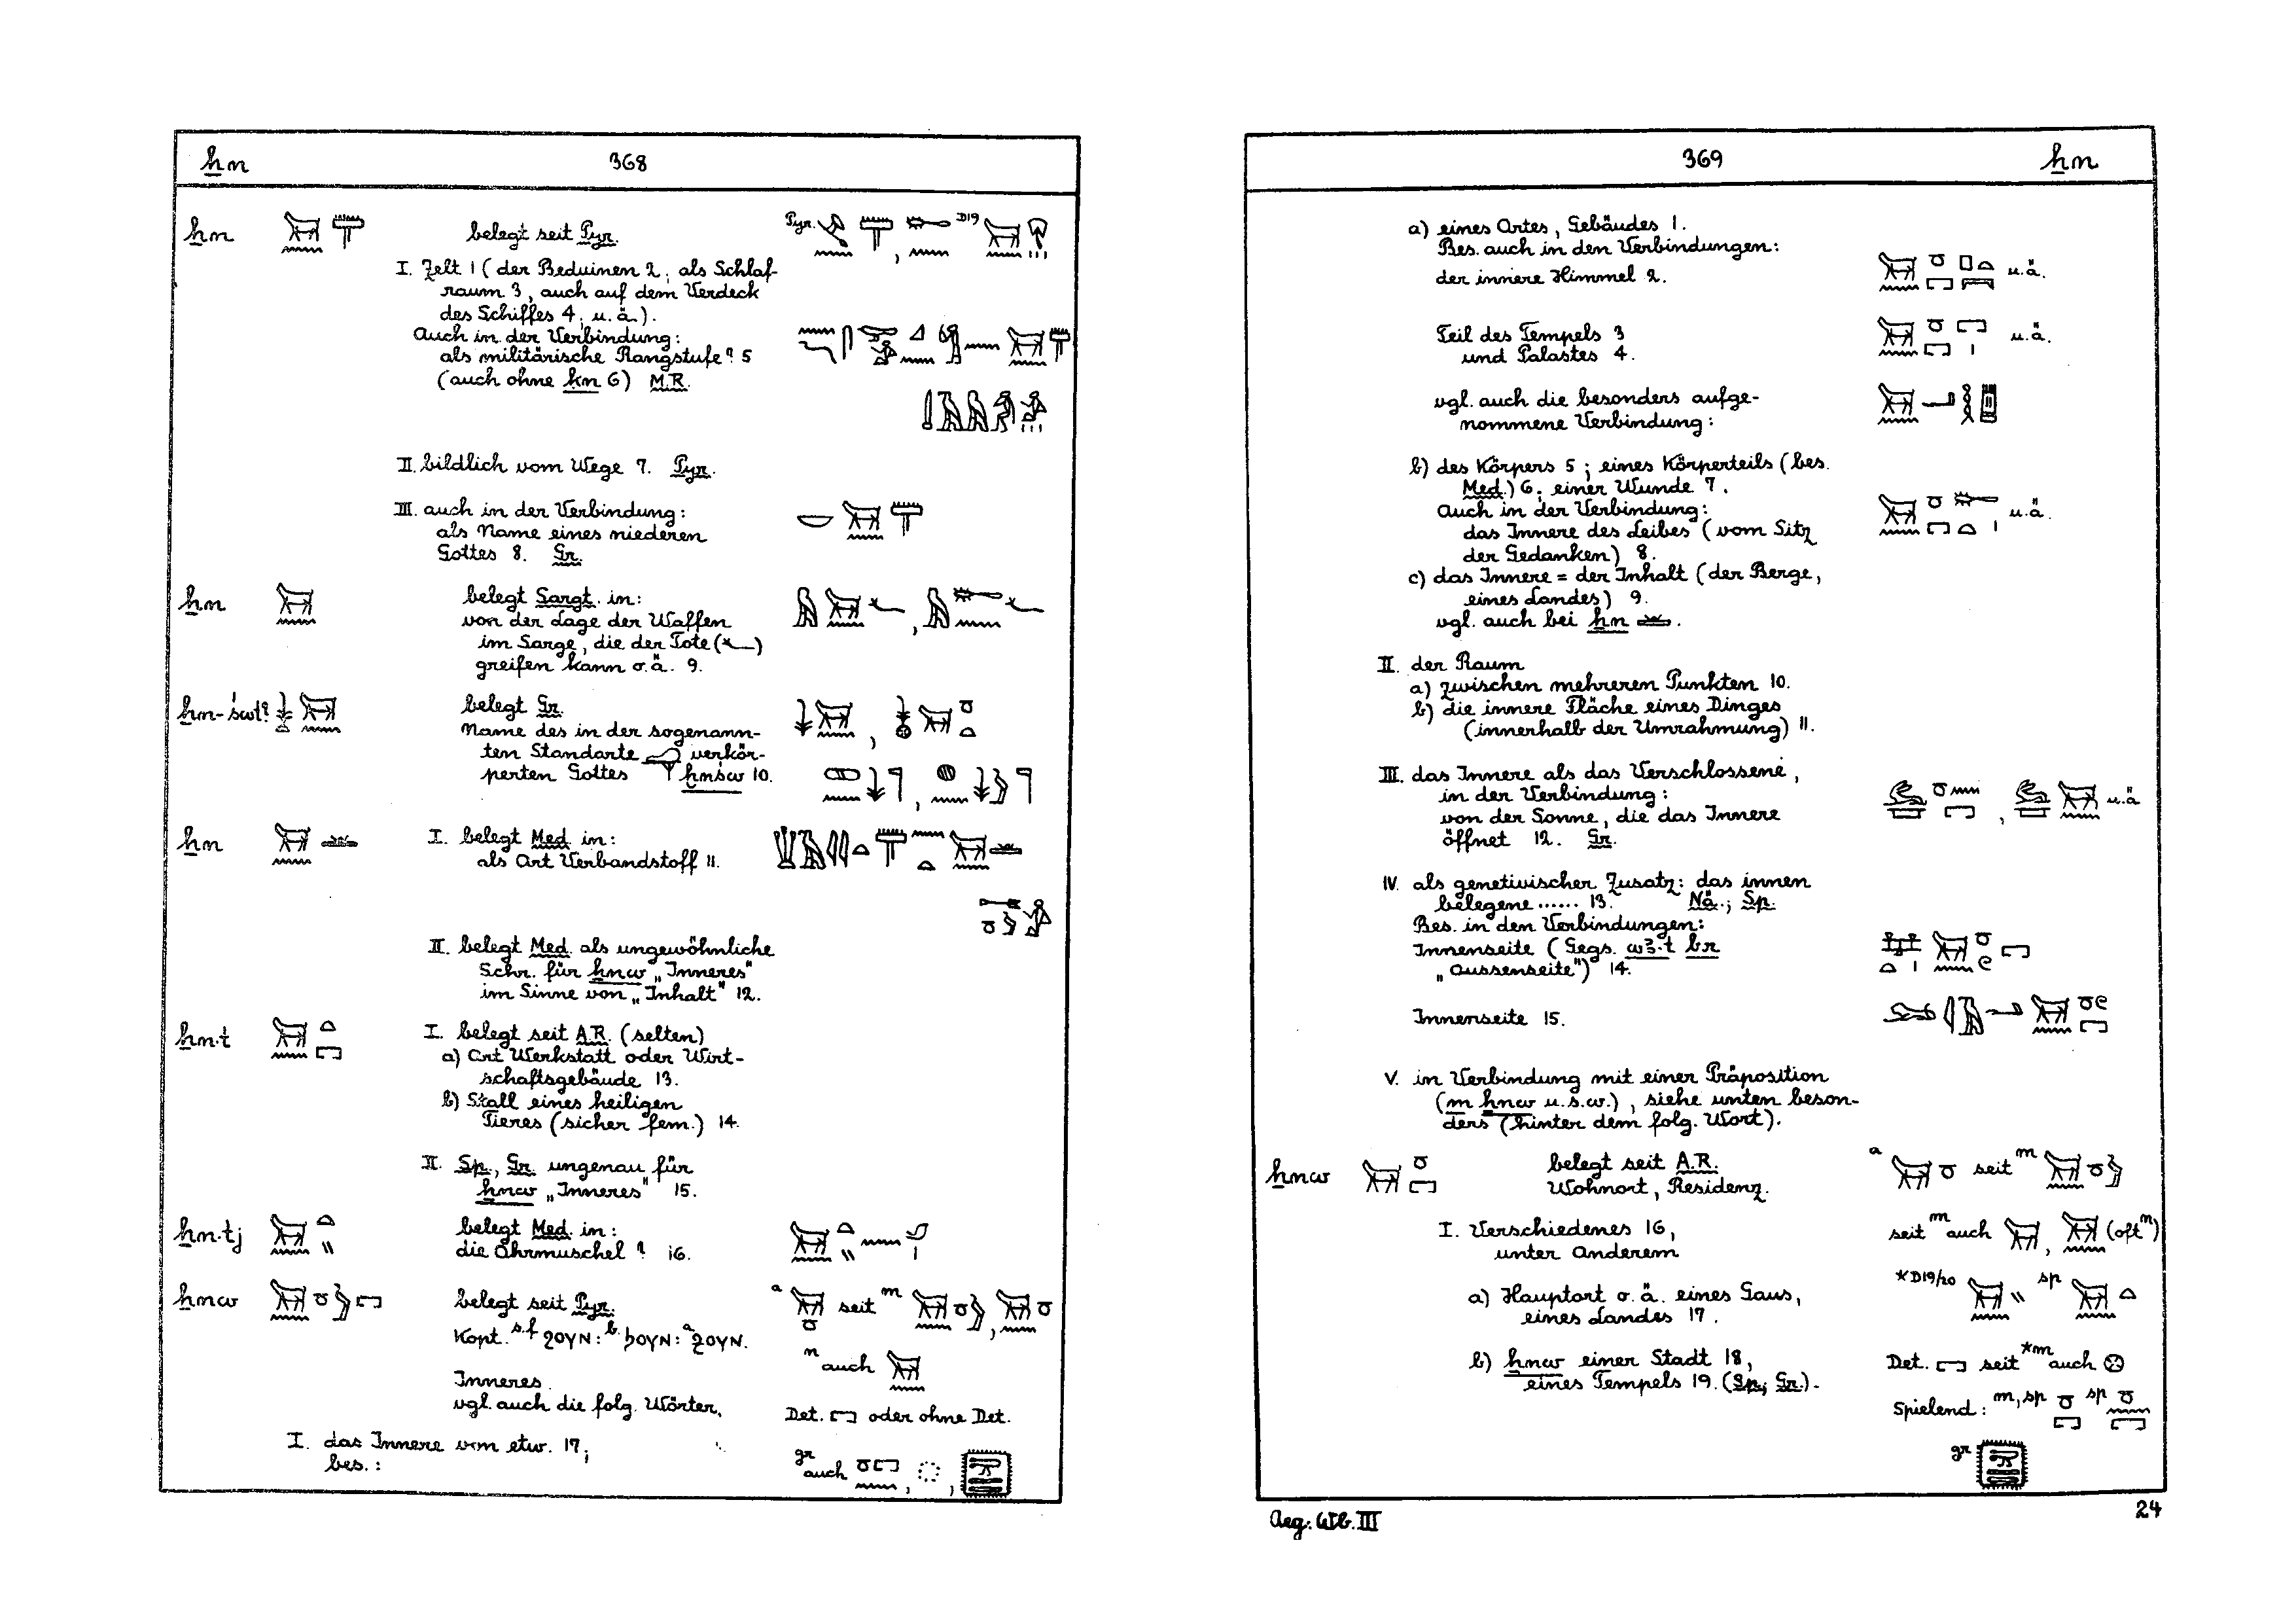 ẖn 368
ẖn belegt seit Pyr. Pyr. D19
I. Zelt 1 (der Beduinen 2; als Schlaf-
raum 3, auch auf dem Verdeck
des Schiffes 4; u.ä.).
Auch in der Verbindung:
als militärische Rangstufe? 5
(auch ohne ẖn 6) M.R.
II. bildlich vom Wege 7. Pyr.
III. auch in der Verbindung:
als Name eines niederen
Gottes 8. Gr.
ẖn belegt Sargt. in:
von der Lage der Waffen
im Sarge, die der Tote ( )
greifen kann o.ä. 9.
ẖn-śwt? belegt Gr.
Name des in der sogenann-
ten Standarte verkör-
perten Gottes ẖnśw 10.
ẖn I. belegt Med. in:
als Art Verbandstoff 11.
II. belegt Med. als ungewöhnliche
Schr. für ẖnw „Inneres"
im Sinne von „Inhalt" 12.
ẖn.t I. belegt seit A.R. (selten)
a) Art Werkstatt oder Wirt-
schaftsgebäude 13.
b) Stall eines heiligen
Tieres (sicher fem.) 14.
II. Sp., Gr. ungenau für
ẖnw „Inneres" 15.
ẖn.tj belegt Med. in:
die Ohrmuschel? 16.
ẖnw belegt seit Pyr. a seit m ,
Kopt. s.f ϩΟΥΝ: b. ϧΟΥΝ: a ϩΟΥΝ.
n auch
Inneres
vgl. auch die folg. Wörter.
Det. oder ohne Det.
I. das Innere von etw. 17;
bes.:
gr auch , ,
369 ẖn
a) eines Ortes, Gebäudes 1.
Bes. auch in den Verbindungen:
der innere Himmel 2. u.ä.
Teil des Tempels 3 u.ä.
und Palastes 4.
vgl. auch die besonders aufge-
nommene Verbindung:
b) des Körpers 5; eines Körperteils (bes.
Med.) 6; einer Wunde 7.
Auch in der Verbindung: u.ä.
das Innere des Leibes (vom Sitz
der Gedanken) 8.
c) das Innere = der Inhalt (der Berge,
eines Landes) 9.
vgl. auch bei ẖn .
II. der Raum
a) zwischen mehreren Punkten 10.
b) die innere Fläche eines Dinges
(innerhalb der Umrahmung) 11.
III. das Innere als das Verschlossene,
in der Verbindung: , u.ä
von der Sonne, die das Innere
öffnet 12. Gr.
IV. als genetivischer Zusatz: das innen
belegene ...... 13. Nä.; Sp.
Bes. in den Verbindungen:
Innenseite (Gegs. wꜣ.t br
„Aussenseite") 14.
Innenseite 15.
V. in Verbindung mit einer Präposition
(m ẖnw u.s.w.), siehe unten beson-
ders (hinter dem folg. Wort).
ẖnw belegt seit A.R. a seit m
Wohnort, Residenz.
I. Verschiedenes 16, seit m auch , (oft n)
unter Anderem
a) Hauptort o.ä. eines Gaus, *D19/20 sp
eines Landes 17.
b) ẖnw einer Stadt 18, Det. seit *m auch
eines Tempels 19. (Sp.; Gr.).
Spielend: m, sp sp
gr
Aeg. Wb. III 24